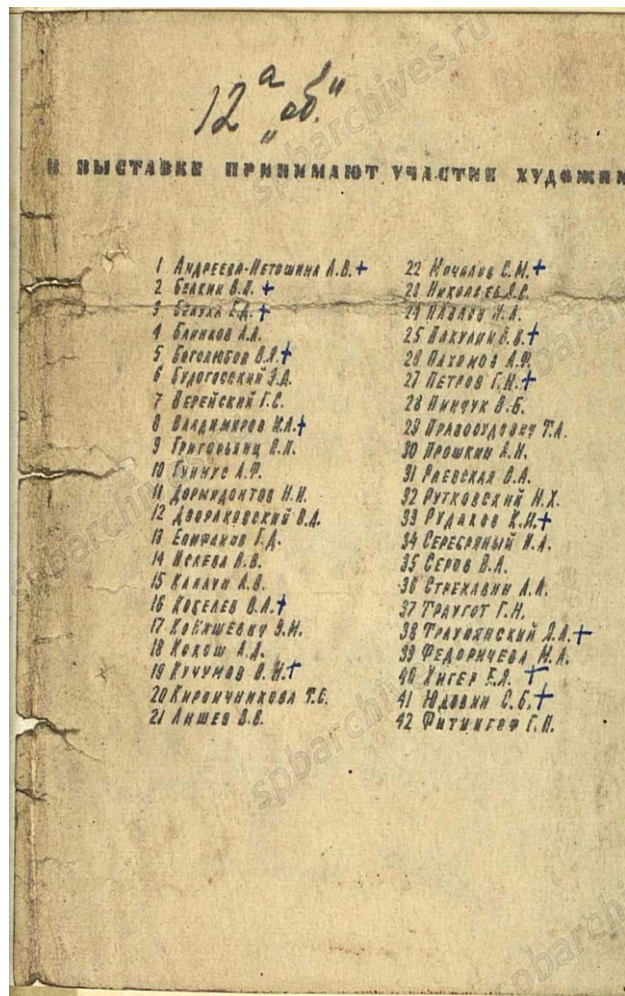 12 а
„об."
В ВЫСТАВКЕ ПРИНИМАЮТ УЧАСТИЕ ХУДОЖНИ
1 АНДРЕЕВА-ПЕТОШИНА А.В. +
2 БЕЛКИН В.П. +
3 БЕЛУХА Е.Д. +
4 БЛИНКОВ А.А.
5 БОГОЛЮБОВ В.Я. +
6 БУДОГОССКИЙ Э.А.
7 ВЕРЕЙСКИЙ Г.С.
8 ВЛАДИМИРОВ И.А. +
9 ГРИГОРЬЯНЦ
10 ГУННУС А.Ф.
11 ДОРМИДОНТОВ Н.И.
12 ДВОРАКОВСКИЙ В.Д.
13 ЕПИФАНОВ Г.Д.
14 ИСАЕВА В.В.
15 КАПЛУН А.В.
16 КОБЕЛЕВ В.А. +
17
18 КОКОШ А.Д.
19 КУЧУМОВ В.Н. +
20 КИРПИЧНИКОВА Т.С.
21 ЛИШЕВ В.В.
22 МОЧАЛОВ С.М. +
23 НИКОЛАЕВ Я.С.
24 ПАВЛОВ И.А.
25 ПАКУЛИН В.В. +
26 ПАХОМОВ А.Ф.
27 ПЕТРОВ Г.Н. +
28 ПИНЧУК В.Б.
29 ПРАВОСУДОВИЧ Т.А.
30 ПРОШКИН А.Н.
31 РАЕВСКАЯ В.А.
32 РУТКОВСКИЙ Н.Х.
33 РУДАКОВ К.И. +
34 СЕРЕБРЯНЫЙ И.А.
35 СЕРОВ В.А.
36 СТРЕКАВИН А.А.
37 ТРАУГОТ Г.Н.
38 ТРАУПЯНСКИЙ Я.А. +
39 ФЕДОРИЧЕВА М.А.
40 ХИГЕР Е.Я. +
41 ЮДОВИН С.Б. +
42 ФИТИНГОФ Г.П.
spbarchives.ru